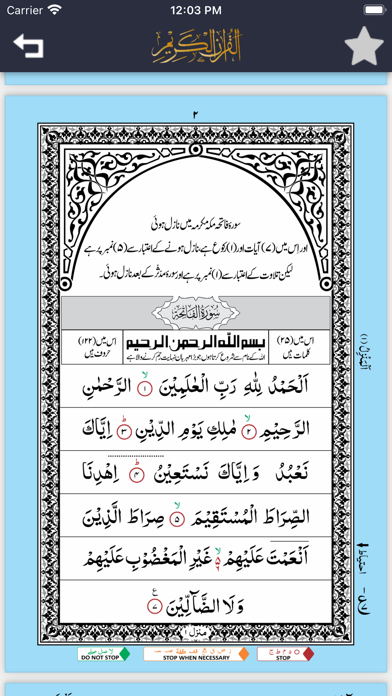 Carrier 12:03 PM
القرآن الكريم
٢
سورۃ فاتحہ مکہ مکرمہ میں نازل ہوئی
اور اس میں (۷) آیات اور (۱) رکوع ہے، نازل ہونے کے اعتبار سے (۵) نمبر پر ہے
لیکن تلاوت کے اعتبار سے (۱) نمبر پر ہے اور سورۃ مدثر کے بعد نازل ہوئی۔
سُوْرَةُ الْفَاتِحَةِ
اس میں (۲۵) کلمات ہیں
بسم الله الرحمن الرحيم
اللہ کے نام سے شروع کرتا ہوں جو بڑا مہربان نہایت رحم کرنے والا ہے
اس میں (۱۲۲) حروف ہیں
اَلْحَمْدُ لِلّٰهِ رَبِّ الْعٰلَمِيْنَ ۙ‏﴿۱﴾ الرَّحْمٰنِ
الرَّحِيْمِ ۙ‏﴿۲﴾ مٰلِكِ يَوْمِ الدِّيْنِ ؕ‏﴿۳﴾ اِيَّاكَ
نَعْبُدُ وَ اِيَّاكَ نَسْتَعِيْنُ ؕ‏﴿۴﴾ اِهْدِنَا
الصِّرَاطَ الْمُسْتَقِيْمَ ۙ‏﴿۵﴾ صِرَاطَ الَّذِيْنَ
اَنْعَمْتَ عَلَيْهِمْ ۙ۬‏﴿۶﴾ غَيْرِ الْمَغْضُوْبِ عَلَيْهِمْ
وَلَا الضَّآلِّيْنَ ‏﴿۷﴾ ع
منزل ۱
اَلْمَنْزِلُ (۱)
احتیاط
DO NOT STOP
STOP WHEN NECESSARY
STOP